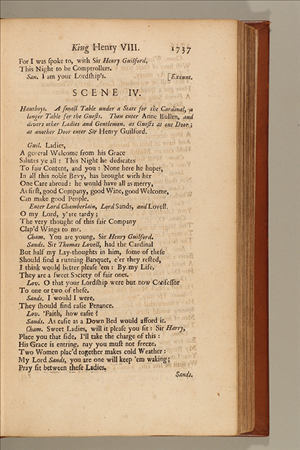 King Henry VIII. 1737
For I was spoke to, with Sir Henry Guilford,
This Night to be Comptrollers.
San. I am your Lordship's. [Exeunt.
SCENE IV.
Hautboys. A small Table under a State for the Cardinal, a
longer Table for the Guests. Then enter Anne Bullen, and
divers other Ladies and Gentlemen, as Guests at one Door;
at another Door enter Sir Henry Guilford.
Guil. Ladies,
A general Welcome from his Grace
Salutes ye all: This Night he dedicates
To fair Content, and you: None here he hopes,
In all this noble Bevy, has brought with her
One Care abroad: he would have all as merry,
As first, good Company, good Wine, good Welcome,
Can make good People.
Enter Lord Chamberlain, Lord Sands, and Lovell.
O my Lord, y'are tardy;
The very thought of this fair Company
Clap'd Wings to me.
Cham. You are young, Sir Henry Guilford.
Sands. Sir Thomas Lovell, had the Cardinal
But half my Lay-thoughts in him, some of these
Should find a running Banquet, e'er they rested,
I think would better please 'em: By my Life,
They are a sweet Society of fair ones.
Lov. O that your Lordship were but now Confessor
To one or two of these.
Sands. I would I were,
They should find easie Penance.
Lov. 'Faith, how easie?
Sands. As easie as a Down Bed would afford it.
Cham. Sweet Ladies, will it please you sit: Sir Harry,
Place you that side, I'll take the charge of this:
His Grace is entring, nay you must not freeze,
Two Women plac'd together makes cold Weather:
My Lord Sands, you are one will keep 'em waking;
Pray sit between these Ladies.
Sands.